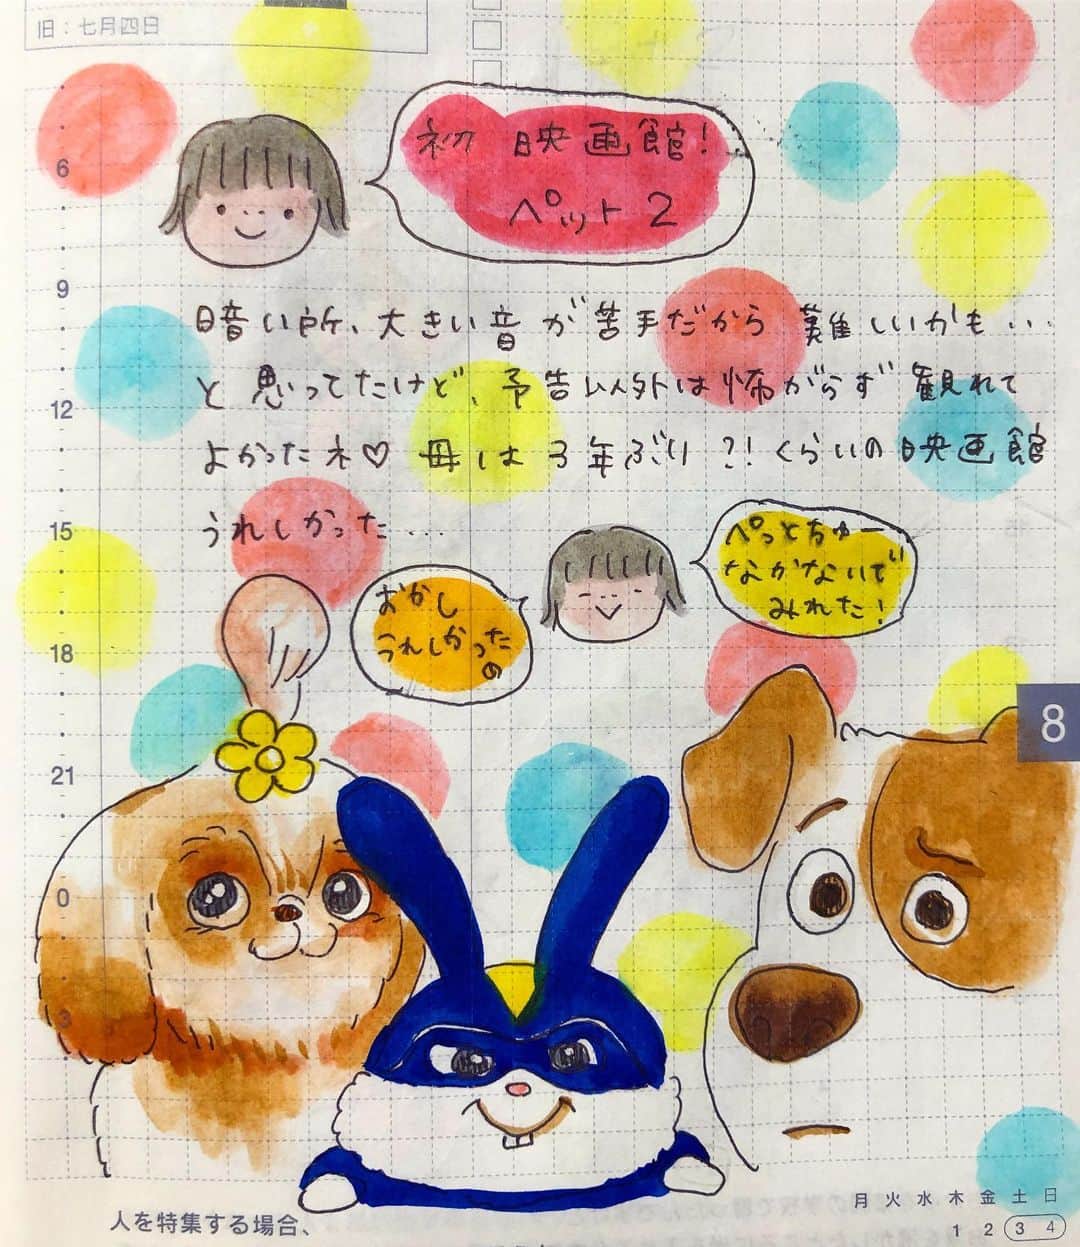 旧：七月四日
初 映画館！
ペット2
6
9
12
15
18
21
0
3
暗い所、大きい音が苦手だから 難しいかも...
と思ってたけど、予告以外は怖がらず 観れて
よかったネ♡ 母は3年ぶり?!くらいの映画館
うれしかった...
おかし
うれしかった
の
ぺっとちゅー
なかないで
みれた！
8
人を特集する場合、
月 火 水 木 金 土 日
1 2 3 4